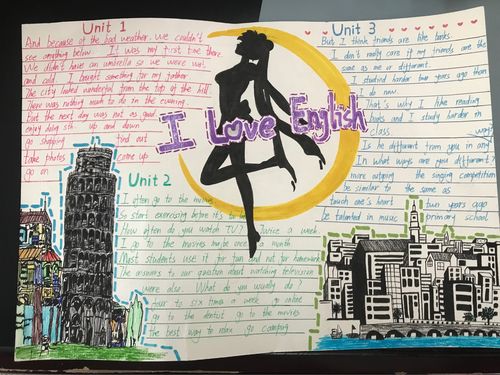 Unit 1
And because of the bad weather. We couldn't
see anything below. It was my first time there
We didn't have an umbrella so we were wet
and cold. I bought something for my father
The city looked wonderful from the top of the hill
There was nothing much to do in the evening.
but the next day was not as good
enjoy doing sth up and down
go shopping find out
take photos come up
go on
I Love English
Unit 2
I often go to the movies
So start exercising before it's too
How often do you watch TV? Twice a week.
I go to the movies maybe once a month
Most students use it for fun and not for homework
The answers to our question about watching television
were also. What do you usually do?
four to six times a week go online
go to the dentist go to the movies
the best way to relax go camping
Unit 3
But I think friends are like books.
I don't really care if my friends are the
same as me or different.
I studied harder two years ago than
I do now.
That's why I like reading
books and I study harder in
class. ways
Is he different from you in any
In what ways are you different?
more outgoing the singing competition
be similar to the same as
touch one's heart two years ago
be talented in music primary school